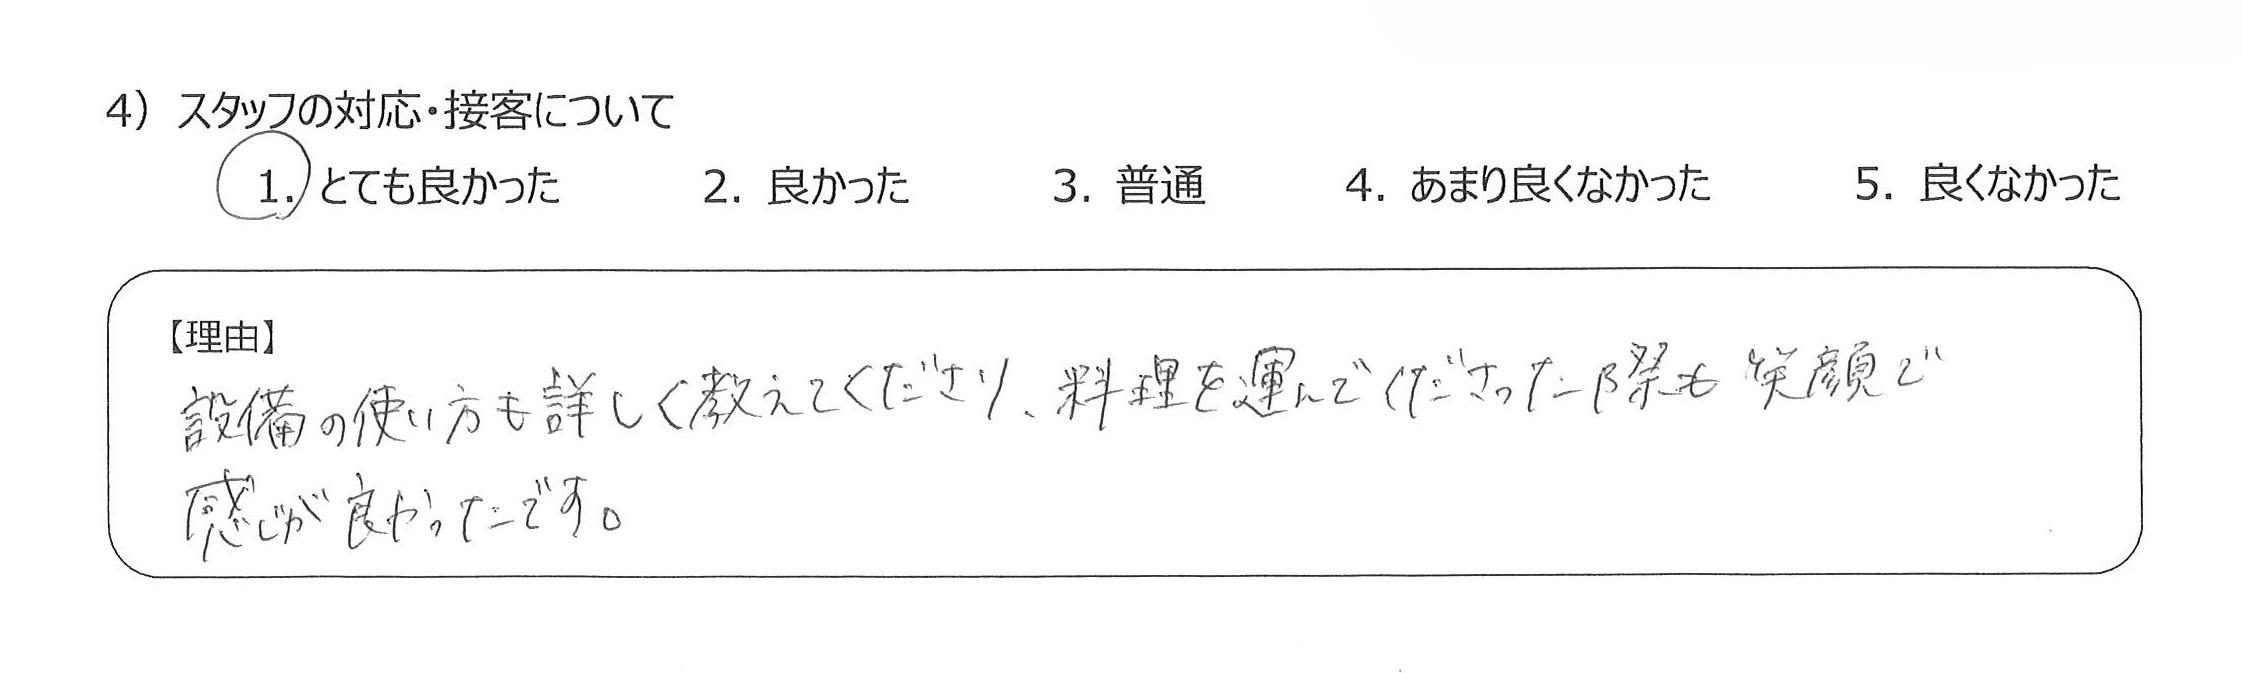 4）スタッフの対応・接客について
1. とても良かった 2. 良かった 3. 普通 4. あまり良くなかった 5. 良くなかった
【理由】
設備の使い方も詳しく教えてくださり、料理を運んでくださった際も笑顔で
感じが良かったです。